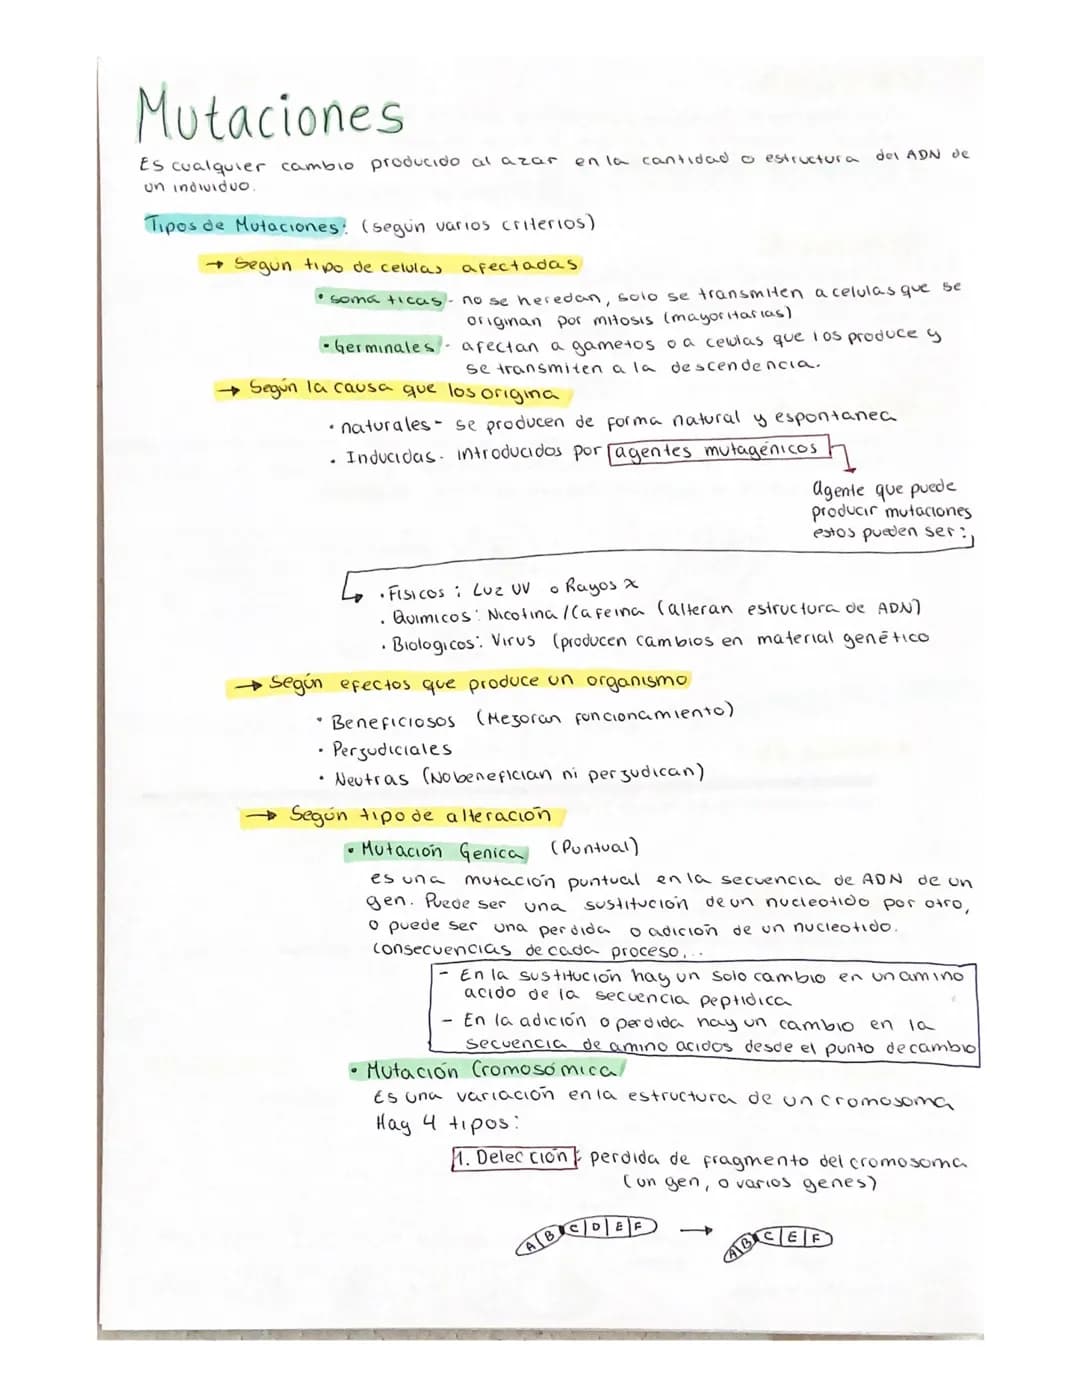 Mutaciones
Es cualquier cambio producido al azar en la cantidad o estructura del ADN de
un individuo.
Tipos de Mutaciones: (según varios criterios)
→ Segun tipo de celulas afectadas
• somáticas - no se heredan, solo se transmiten a celulas que se
originan por mitosis (mayoritarias)
• Germinales - afectan a gametos o a celulas que los produce y
se transmiten a la descendencia.
→ Según la causa que los origina
• naturales - se producen de forma natural y espontanea
• Inducidas. introducidos por agentes mutagénicos
agente que puede
producir mutaciones
estos pueden ser:
• Físicos: Luz UV o Rayos x
• Quimicos: Nicotina/Cafeina (alteran estructura de ADN)
• Biologicos: Virus (producen cambios en material genético
→ Según efectos que produce un organismo
• Beneficiosos (Mejoran funcionamiento)
• Perjudiciales
• Neutras (No benefician ni perjudican)
→ Según tipo de alteración
• Mutación Genica (Puntual)
es una mutación puntual en la secuencia de ADN de un
gen. Puede ser una sustitución de un nucleotido por otro,
o puede ser una perdida o adición de un nucleotido.
Consecuencias de cada proceso...
- En la sustitución hay un solo cambio en un amino
acido de la secuencia peptidica
- En la adición o perdida hay un cambio en la
secuencia de amino acidos desde el punto de cambio
• Mutación Cromosómica
Es una variación en la estructura de un cromosoma
Hay 4 tipos:
1. Delección: perdida de fragmento del cromosoma
(un gen, o varios genes)
A B C D E F → A B C E F